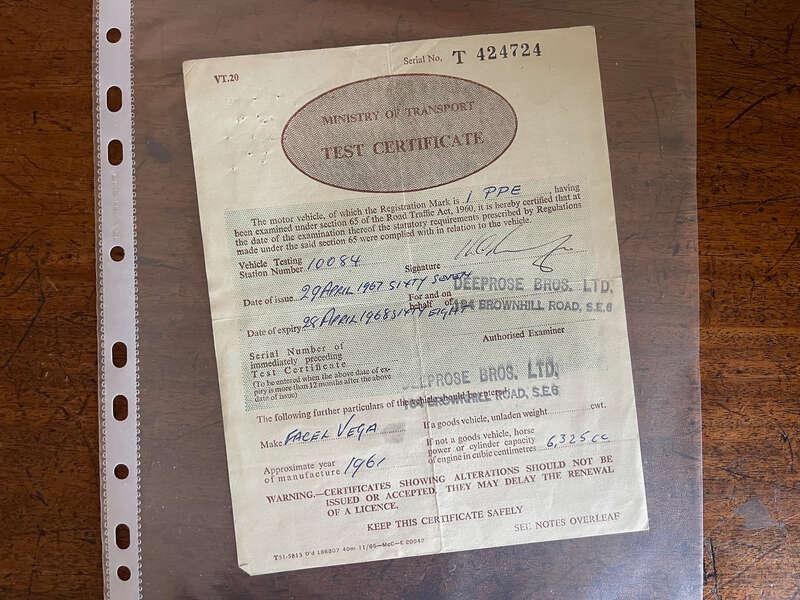 VT.20
Serial No. T 424724
MINISTRY OF TRANSPORT
TEST CERTIFICATE
The motor vehicle, of which the Registration Mark is 1 PPE, having
been examined under section 65 of the Road Traffic Act, 1960, it is hereby certified that at
the date of the examination thereof the statutory requirements prescribed by Regulations
made under the said section 65 were complied with in relation to the vehicle.
Vehicle Testing
Station Number 10084
Signature
Date of issue 29 APRIL 1967 SIXTY SEVEN
For and on
behalf of
DEEPROSE BROS. LTD.
194 BROWNHILL ROAD, S.E.6
Date of expiry 28 APRIL 1968 SIXTY EIGHT
Authorised Examiner
Serial Number of
immediately preceding
Test Certificate
(To be entered when the above date of ex-
piry is more than 12 months after the above
date of issue)
DEEPROSE BROS. LTD.
194 BROWNHILL ROAD, S.E.6
The following further particulars of the vehicle should be entered
Make FACEL VEGA
If a goods vehicle, unladen weight cwt.
Approximate year
of manufacture 1961
If not a goods vehicle, horse
power or cylinder capacity
of engine in cubic centimetres 6,325 cc
WARNING.—CERTIFICATES SHOWING ALTERATIONS SHOULD NOT BE
ISSUED OR ACCEPTED. THEY MAY DELAY THE RENEWAL
OF A LICENCE.
KEEP THIS CERTIFICATE SAFELY
SEE NOTES OVERLEAF